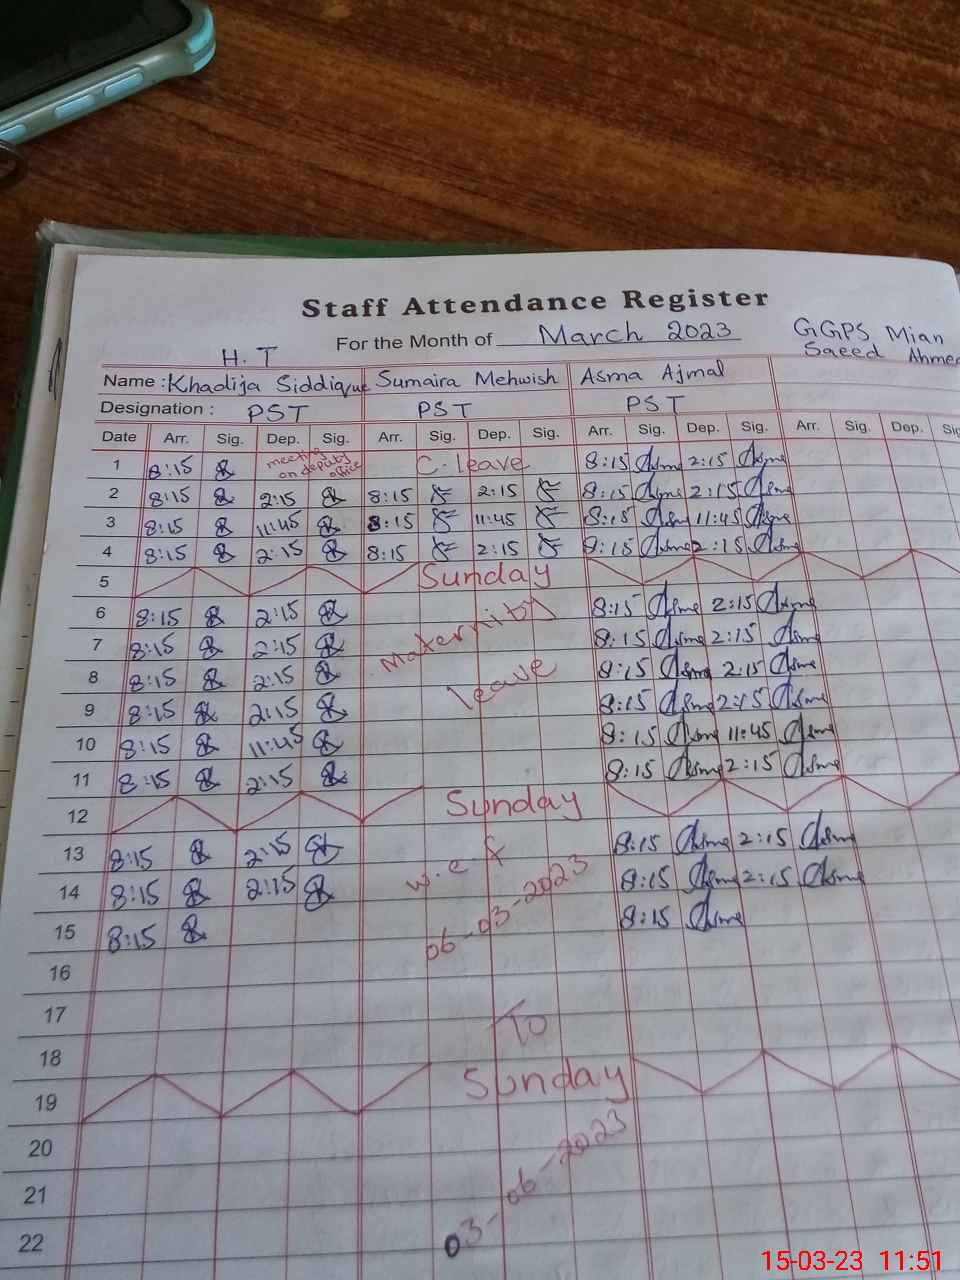 Staff Attendance Register
For the Month of March 2023 GGPS Mian
H.T Saeed Ahmed
Name : Khadija Siddique Sumaira Mehwish Asma Ajmal
Designation : PST PST PST
Date Arr. Sig. Dep. Sig. Arr. Sig. Dep. Sig. Arr. Sig. Dep. Sig. Arr. Sig. Dep. Sig
1 8:15 meeting on deputy office C. leave 8:15 Asma 2:15 Asma
2 8:15 2:15 8:15 2:15 8:15 Asma 2:15 Asma
3 8:15 11:45 8:15 11:45 8:15 Asma 11:45 Asma
4 8:15 2:15 8:15 2:15 8:15 Asma 2:15 Asma
5 Sunday
6 8:15 2:15 Maternity 8:15 Asma 2:15 Asma
7 8:15 2:15 8:15 Asma 2:15 Asma
8 8:15 2:15 leave 8:15 Asma 2:15 Asma
9 8:15 2:15 8:15 Asma 2:15 Asma
10 8:15 11:45 8:15 Asma 11:45 Asma
11 8:15 2:15 8:15 Asma 2:15 Asma
12 Sunday
13 8:15 2:15 w.e.f 8:15 Asma 2:15 Asma
14 8:15 2:15 06-03-2023 8:15 Asma 2:15 Asma
15 8:15 8:15 Asma
16
17 To
18
19 Sunday
20
21 03-06-2023
22
15-03-23 11:51